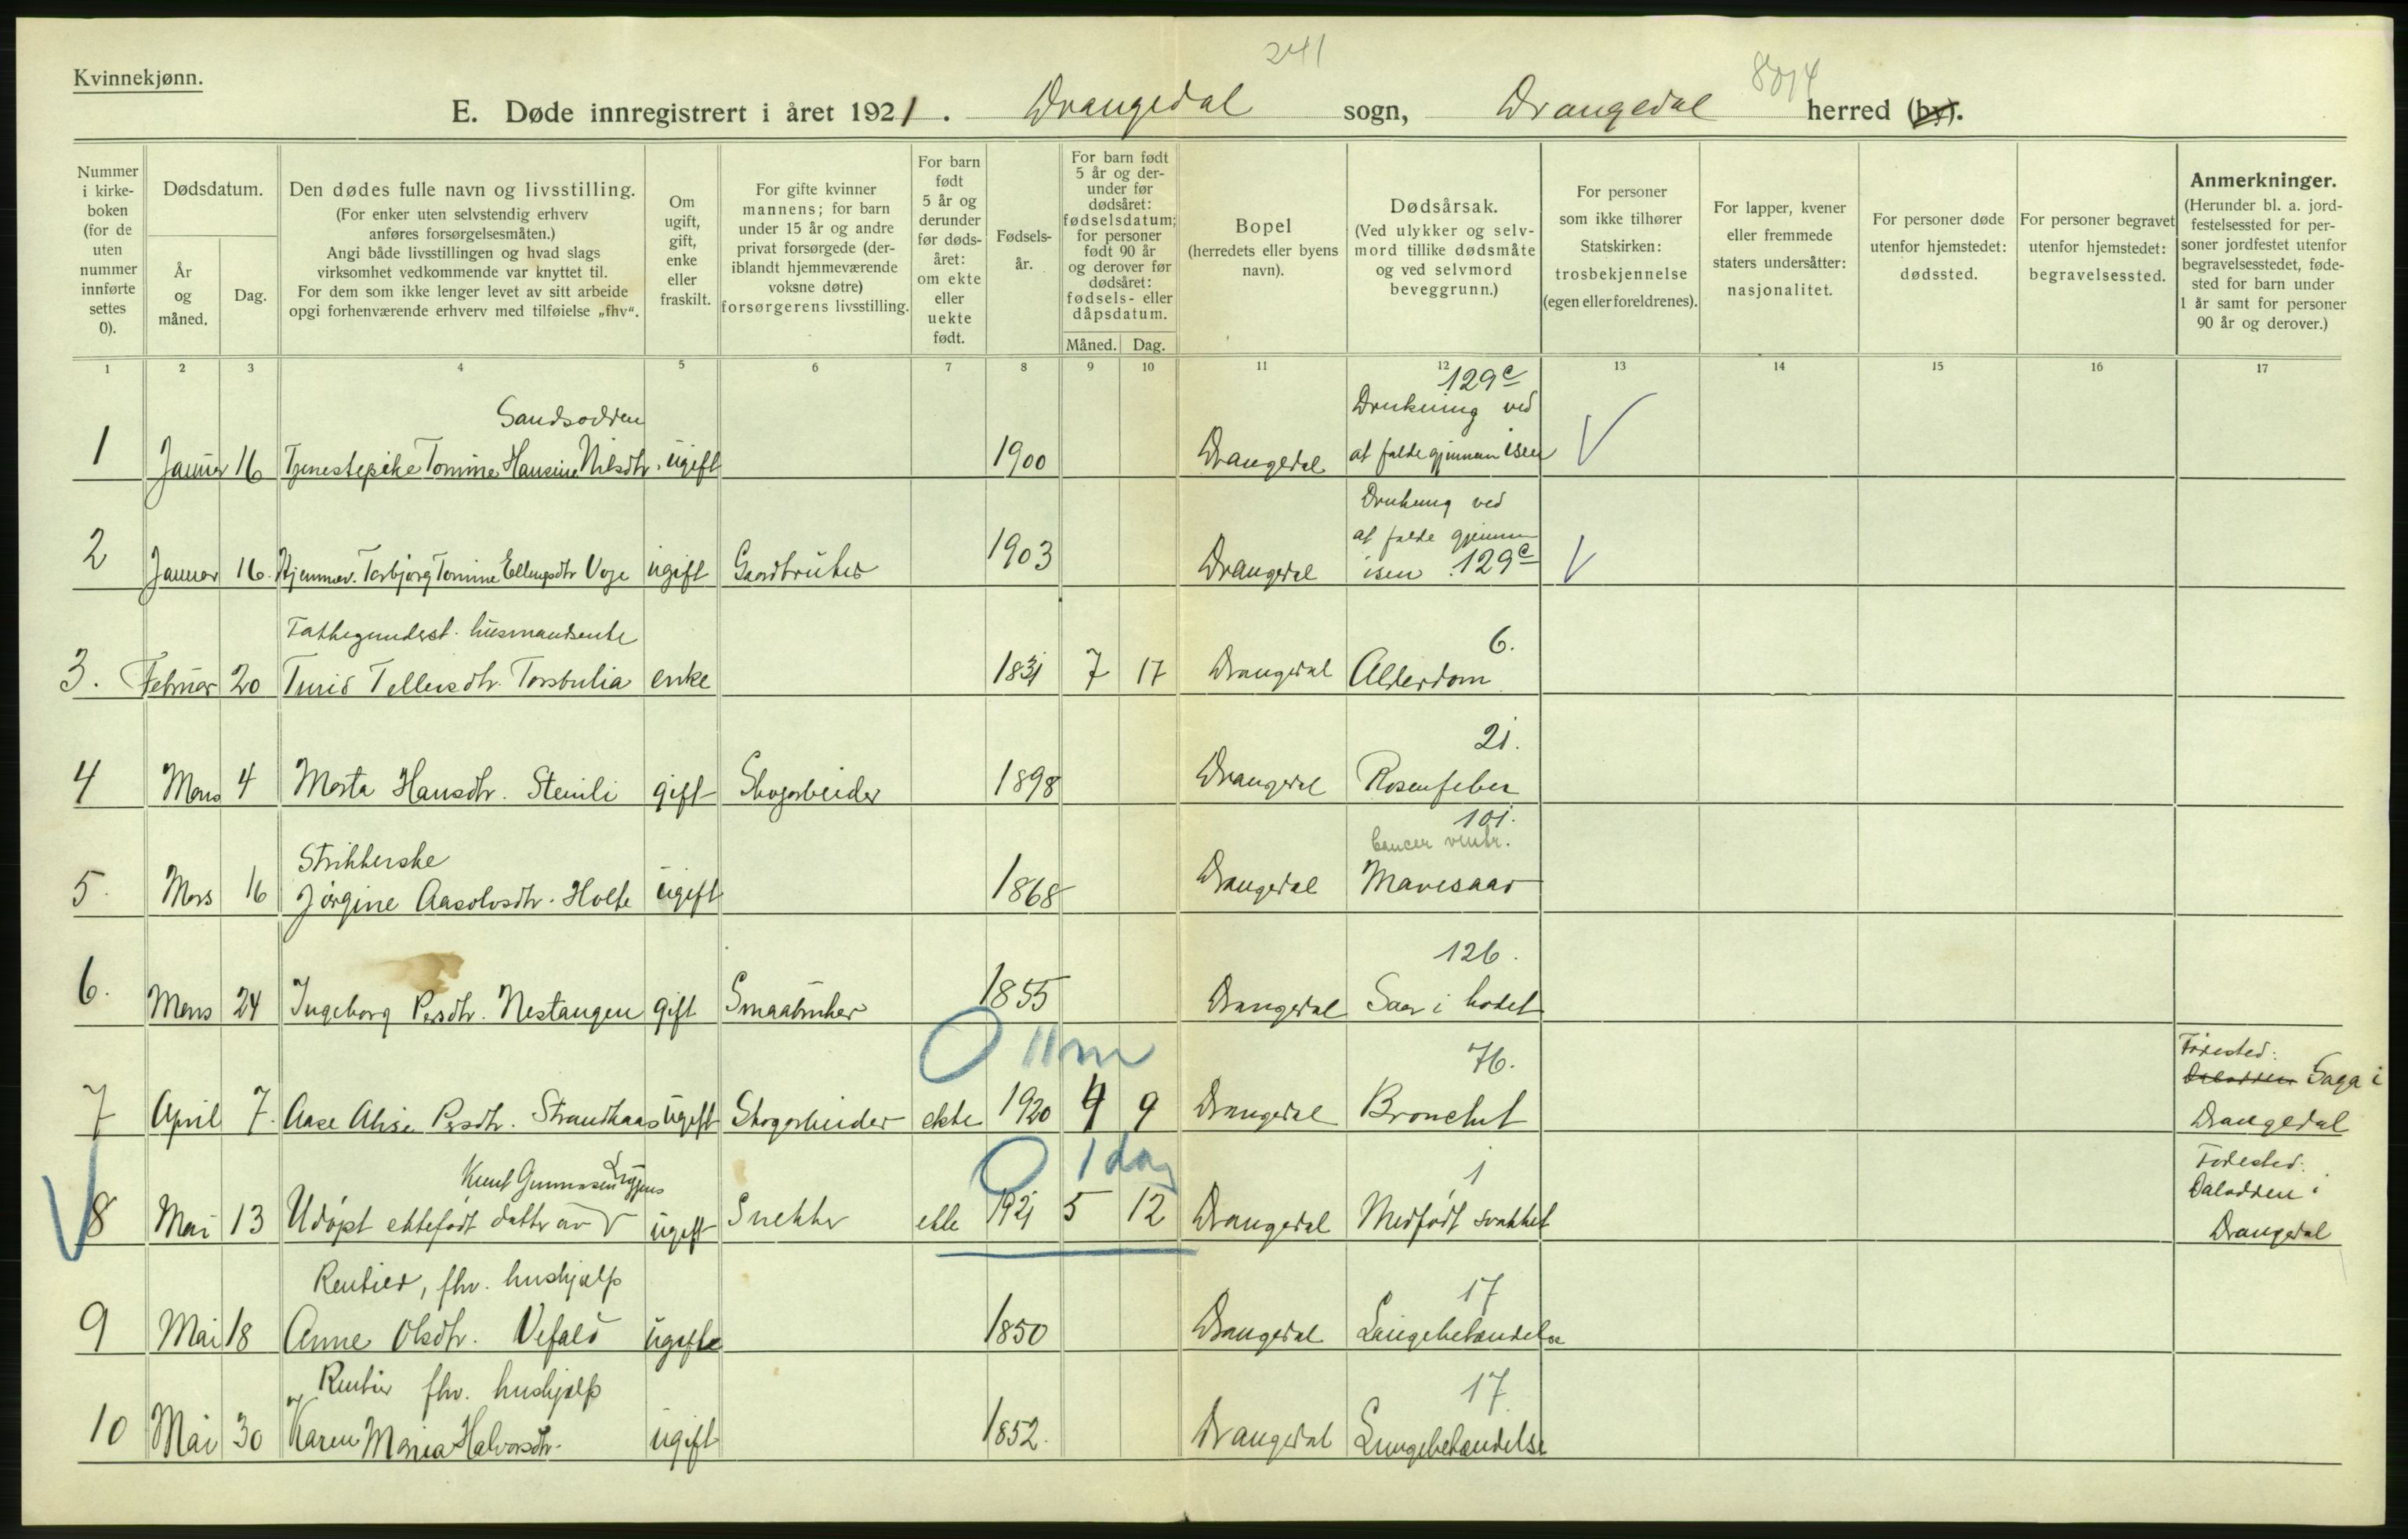 241
8014
Kvinnekjønn.
E. Døde innregistrert i året 1921. Drangedal sogn, Drangedal herred (by).
Nummer i kirke-boken (for de uten nummer innførte settes 0).
Dødsdatum.
År og måned.
Dag.
Den dødes fulle navn og livsstilling.
(For enker uten selvstendig erhverv anføres forsørgelsesmåten.)
Angi både livsstillingen og hvad slags virksomhet vedkommende var knyttet til.
For dem som ikke lenger levet av sitt arbeide opgi forhenværende erhverv med tilføielse „fhv“.
Om ugift, gift, enke eller fraskilt.
For gifte kvinner mannens; for barn under 15 år og andre privat forsørgede (deriblandt hjemmeværende voksne døtre) forsørgerens livsstilling.
For barn født 5 år og derunder før døds-året: om ekte eller uekte født.
Fødsels-år.
For barn født 5 år og der-under før dødsåret: fødselsdatum; for personer født 90 år og derover før dødsåret: fødsels- eller dåpsdatum.
Måned. Dag.
Bopel (herredets eller byens navn).
Dødsårsak.
(Ved ulykker og selv-mord tillike dødsmåte og ved selvmord beveggrunn.)
For personer som ikke tilhører Statskirken: trosbekjennelse (egen eller foreldrenes).
For lapper, kvener eller fremmede staters undersåtter: nasjonalitet.
For personer døde utenfor hjemstedet: dødssted.
For personer begravet utenfor hjemstedet: begravelsessted.
Anmerkninger.
(Herunder bl. a. jord-festelsessted for per-soner jordfestet utenfor begravelsesstedet, føde-sted for barn under 1 år samt for personer 90 år og derover.)
1 2 3 4 5 6 7 8 9 10 11 12 13 14 15 16 17
129c
Sandsodden Drukning ved
1 Januar 16 Tjenestepike Tomine Hansine Nilsdtr. ugift 1900 Drangedal at falde gjennem isen
Drukning ved
at falde gjennem
2 Januar 16. Hjemmev. Torbjørg Tomine Ellingsdtr Voje ugift Gaardbruker 1903 Drangedal isen 129c
Fattigunderst. husmandsenke 6.
3. Februar 20 Turid Tellevsdtr. enke 1831 7 17 Drangedal Alderdom
21.
4 Mars 4 Marta Hansdtr. Steinli gift Skogarbeider 1898 Drangedal Rosenfeber
101.
Strikkerske Cancer ventr.
5. Mars 16 Jørgine Aasolvsdtr. Holte ugift 1868 Drangedal Mavesaar
126.
6. Mars 24 Ingeborg Persdtr. Nestangen gift Smaabruker 1855 Drangedal Saar i hodet
0 11 m 76. Fødested:
Saga i
7 April 7. Aase Alise Persdtr. ugift Skogarbeider ekte 1920 4 9 Drangedal Bronchit Drangedal
0 1 dag 1 Fødested:
Knut Gunnarsen Daladden i
8 Mai 13 Udøpt ektefødt datter av ugift Snekker ekte 1921 5 12 Drangedal Medfødt svakhet Drangedal
Rentier, fhv. hushjælp 17
9 Mai 18 Anne Olsdtr. Vefald ugifte 1850 Drangedal Lungebetændelse
Rentier fhv. hushjælp 17
10 Mai 30 Karen Maria Halvorsdtr. ugift 1852. Drangedal Lungebetændelse